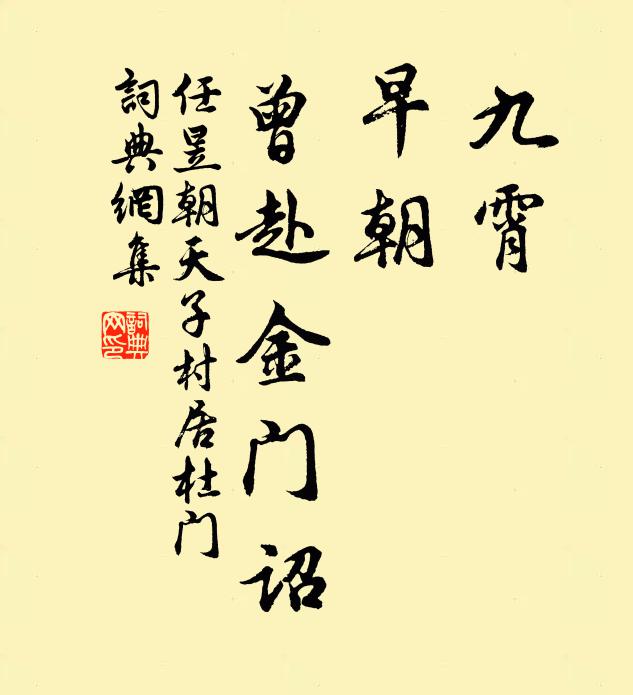 九霄
早朝
曾赴金门詔
任昱朝天子村居杜门
詞典網集
詞典網印